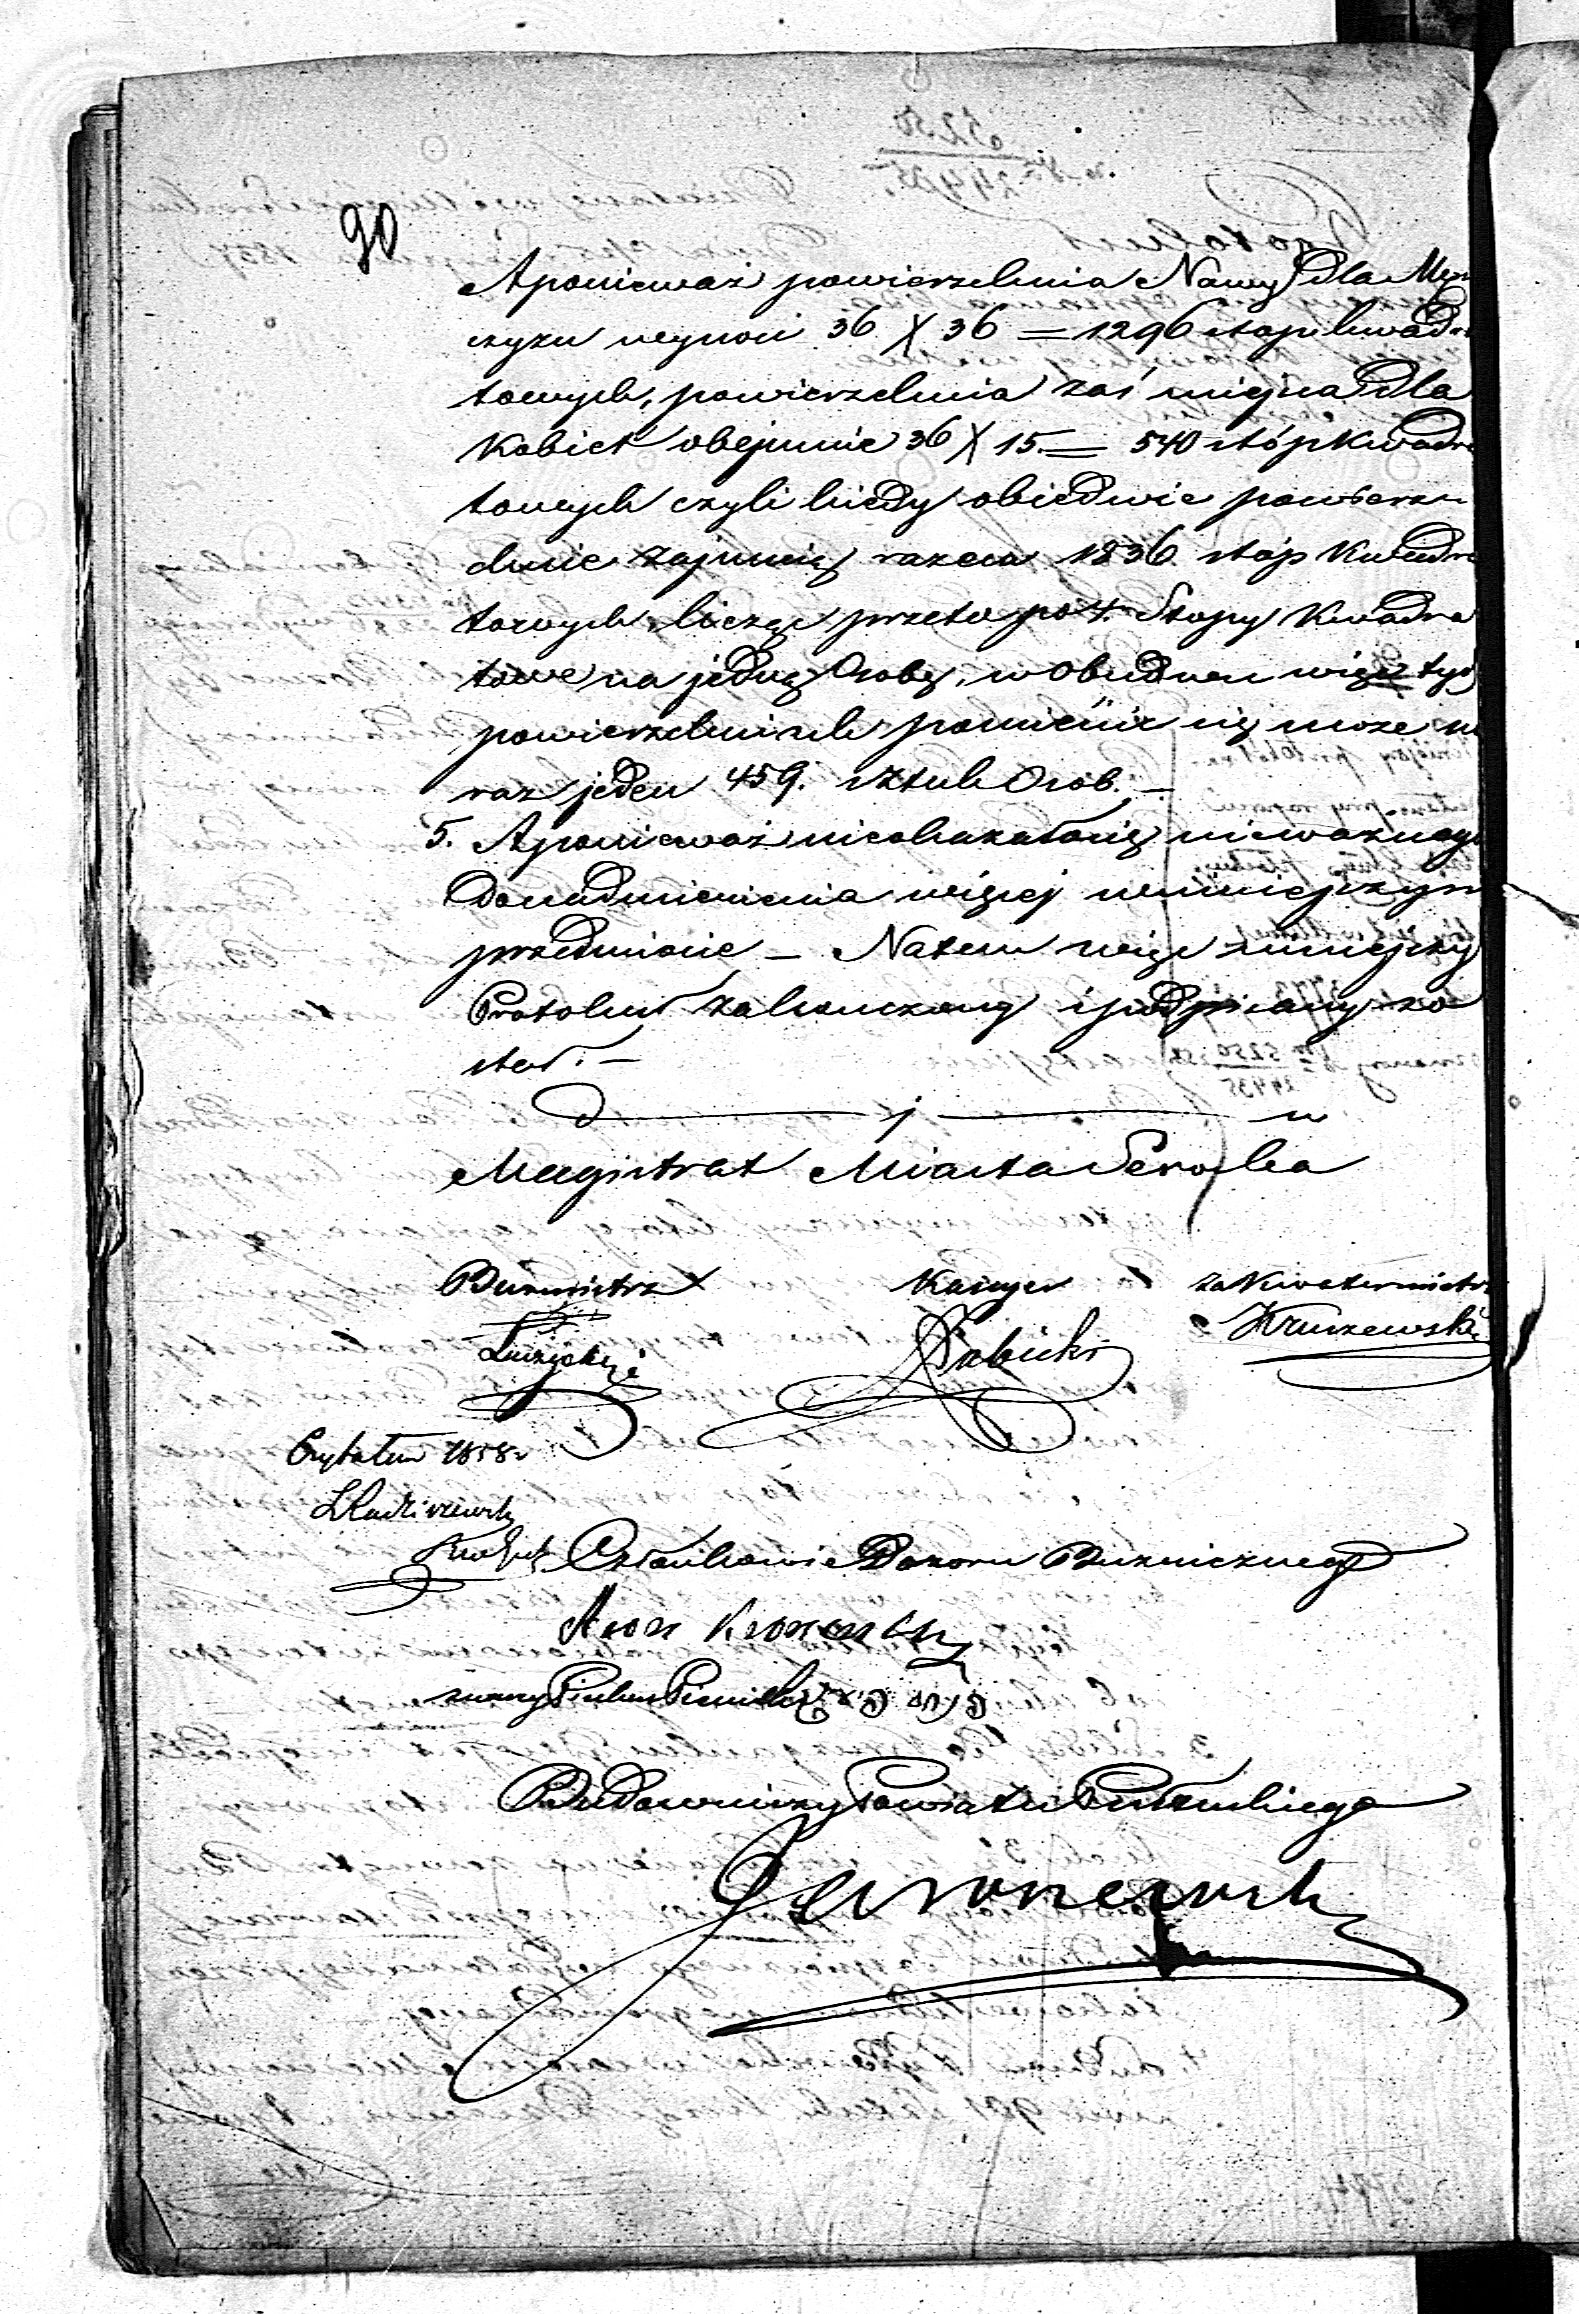 90
A ponieważ powierzchnia Nawy dla Męż
czyzn wynosi 36 X 36 = 1296 stop kwadra
towych, powierzchnia zaś miejsca dla
Kobiet obejmuie 36 X 15. = 540 stóp Kwadra
towych czyli kiedy obiedwie powierz
chnie zajmuią razem 1836 stóp Kwadra
towych, licząc przeto po 4. Stopy Kwadra
towe na jedną Osobę, w obudwu więc tych
powierzchniach pomieścić się może na
raz jeden 459. sztuk Osób. –
5. A ponieważ nieokazało się nieważnego
Do nadmienienia więcej w niniejszym
przedmiocie – Natem więc niniejszy
Protokuł zakonczony i podpisany zo
stał. –
D — j — w
Magistrat Miasta Serocka
Burmistrz Kassyer za Kwatermistrz
Kruszewski
Czytałem 1858 r
Członkowie Dozoru Bużnicznego
Budowniczy Powiatu Pułtuskiego